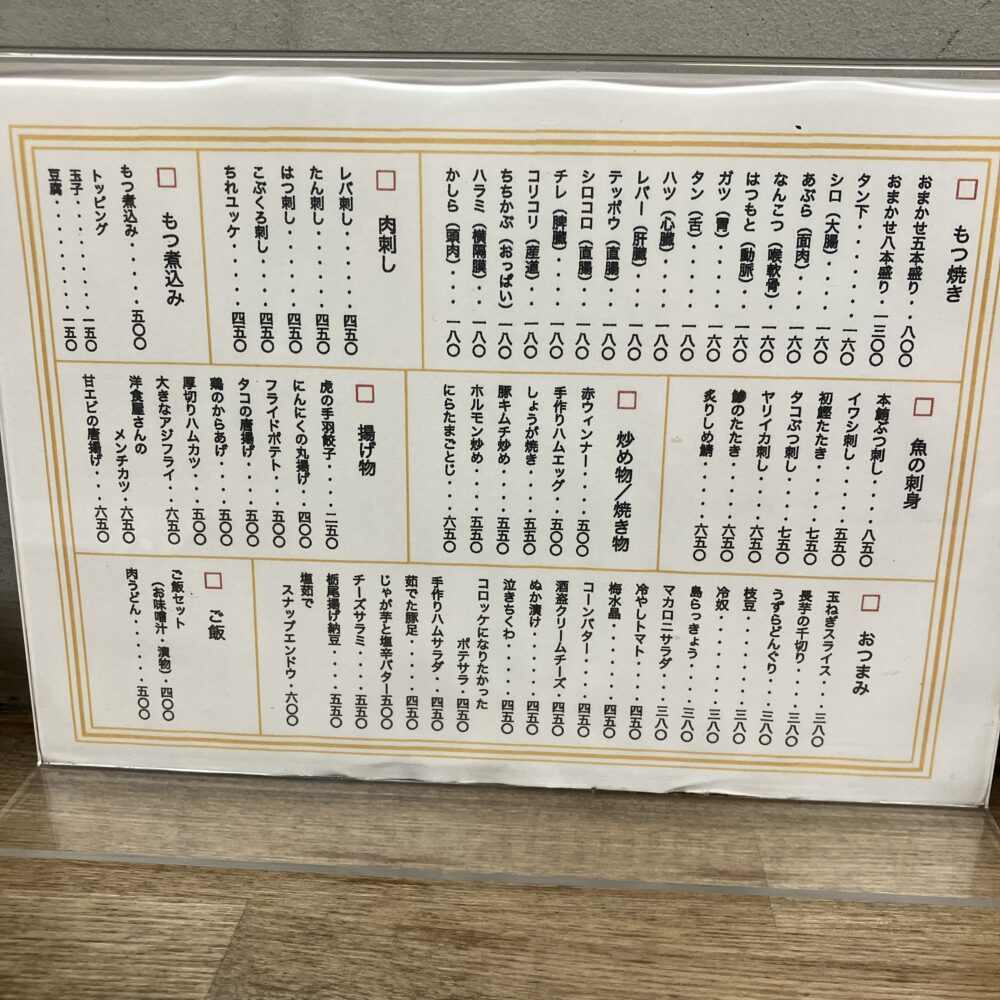 □ もつ焼き
おまかせ五本盛り・・八〇〇
おまかせ八本盛り・一三〇〇
タン下・・・・・・・一六〇
シロ（大腸）・・・・一六〇
あぶら（面肉）・・・一六〇
なんこつ（喉軟骨）・一六〇
はつもと（動脈）・・一六〇
ガツ（胃）・・・・・一六〇
タン（舌）・・・・・一八〇
ハツ（心臓）・・・・一八〇
レバー（肝臓）・・・一八〇
テッポウ（直腸）・・一八〇
シロコロ（直腸）・・一八〇
チレ（脾臓）・・・・一八〇
コリコリ（産道）・・一八〇
ちちかぶ（おっぱい）一八〇
ハラミ（横隔膜）・・一八〇
かしら（頭肉）・・・一八〇
□ 肉刺し
レバ刺し・・・・・四五〇
たん刺し・・・・・四五〇
はつ刺し・・・・・四五〇
こぶくろ刺し・・・四五〇
ちれユッケ・・・・四五〇
□ もつ煮込み
もつ煮込み・・・・・五〇〇
トッピング
玉子・・・・・・・・一五〇
豆腐・・・・・・・・一五〇
□ 魚の刺身
本鮪ぶつ刺し・・・八五〇
イワシ刺し・・・・五五〇
初鰹たたき・・・・六五〇
タコぶつ刺し・・・七五〇
ヤリイカ刺し・・・六五〇
鯵のたたき・・・・六五〇
炙りしめ鯖・・・・六五〇
□ 炒め物／焼き物
赤ウィンナー・・・五〇〇
手作りハムエッグ・五〇〇
しょうが焼き・・・五五〇
豚キムチ炒め・・・五五〇
ホルモン炒め・・・五五〇
にらたまごとじ・・六五〇
□ 揚げ物
虎の手羽餃子・・・二五〇
にんにくの丸揚げ・四〇〇
フライドポテト・・五〇〇
タコの唐揚げ・・・五〇〇
鶏のからあげ・・・五〇〇
厚切りハムカツ・・五〇〇
大きなアジフライ・六五〇
洋食屋さんの
メンチカツ・六五〇
甘エビの唐揚げ・・六五〇
□ おつまみ
玉ねぎスライス・・・三八〇
長芋の千切り・・・・三八〇
うずらどんぐり・・・三八〇
枝豆・・・・・・・・三八〇
冷奴・・・・・・・・三八〇
島らっきょう・・・・三八〇
マカロニサラダ・・・三八〇
冷やしトマト・・・・四五〇
梅水晶・・・・・・・四五〇
コーンバター・・・・四五〇
酒盗クリームチーズ・四五〇
ぬか漬け・・・・・・四五〇
泣きちくわ・・・・・四五〇
コロッケになりたかった
ポテサラ・・四五〇
手作りハムサラダ・・四五〇
茹でた豚足・・・・・四五〇
じゃが芋と塩辛バター五〇〇
チーズサラミ・・・・五五〇
栃尾揚げ納豆・・・・五五〇
塩茹で
スナップエンドウ・六〇〇
□ ご飯
ご飯セット
（お味噌汁・漬物）四〇〇
肉うどん・・・・・五〇〇